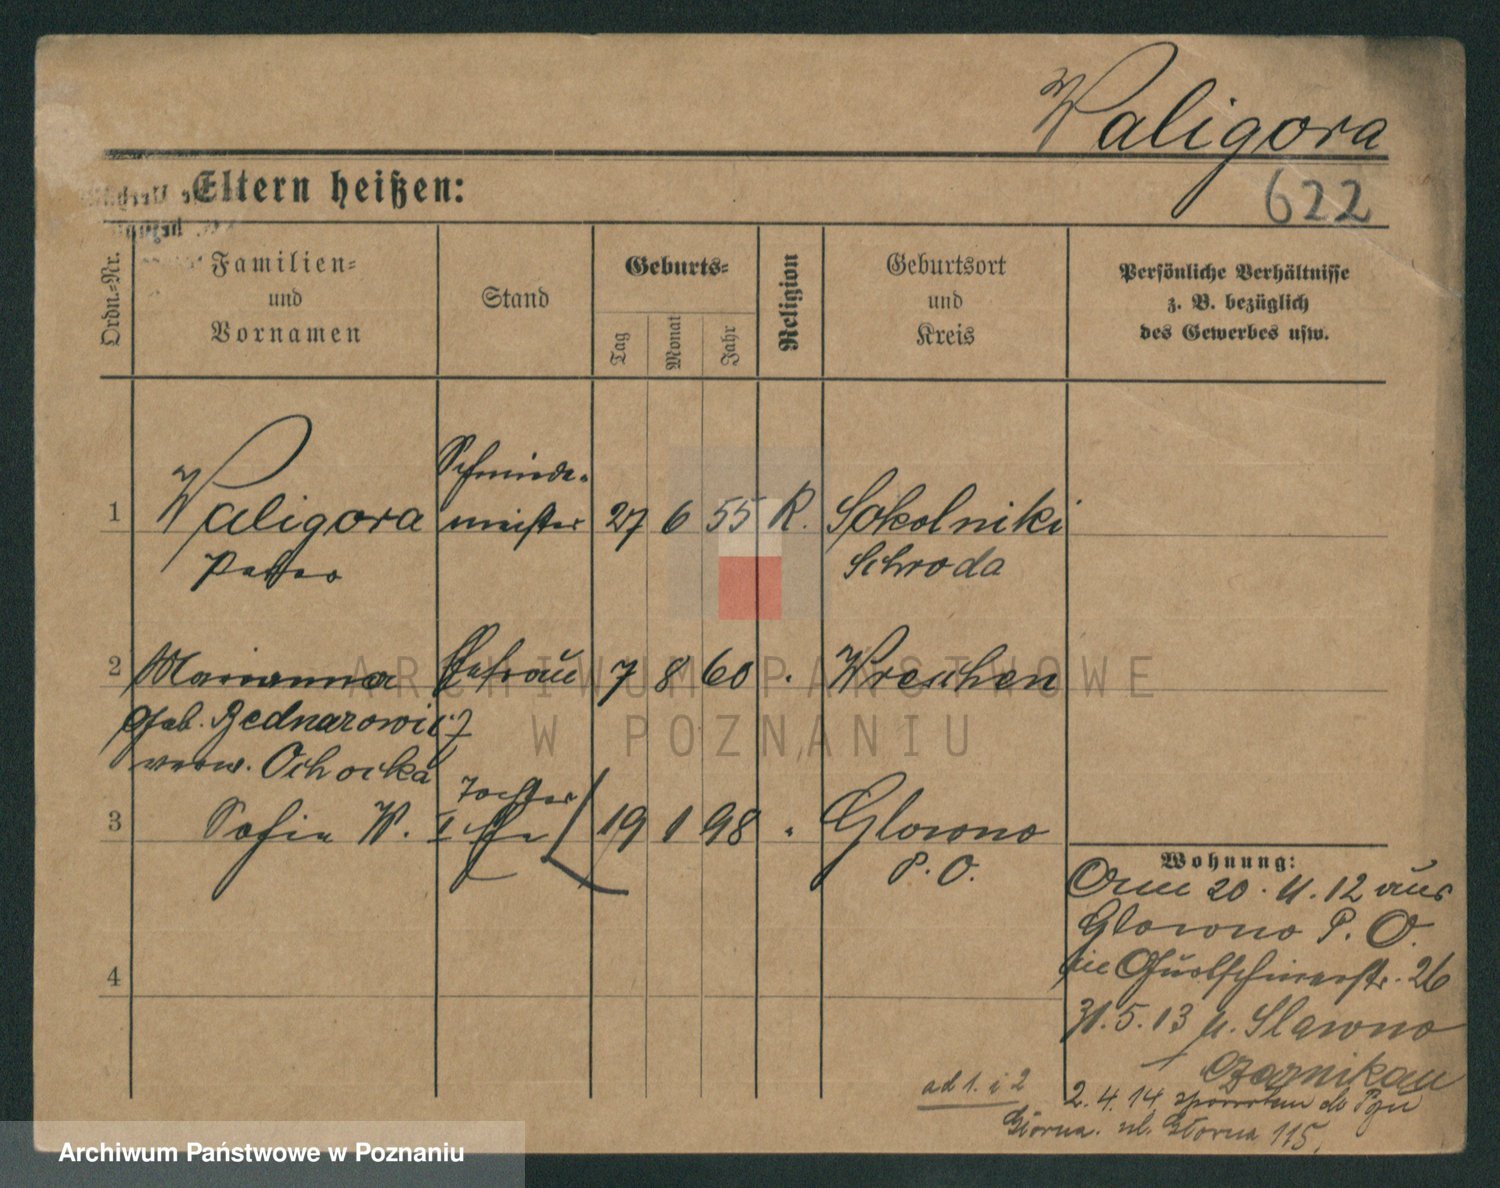 Waligora
622
Eltern heißen:
Ordn.-Nr.
Familien-
und
Vornamen
Stand
Geburts-
Tag
Monat
Jahr
Religion
Geburtsort
und
Kreis
Persönliche Verhältnisse
z. B. bezüglich
des Gewerbes usw.
1 Waligora Schmiede-
meister 27 6 55 R. Sokolniki
Schroda
2 Marianna Ehefrau 7 8 60 " Wreschen
geb. Bednarowicz
verw. Ochocka
3 Sofie W. Tochter
19 1 98 " Glowno
P. O.
4
Wohnung:
20. 11. 12 aus
Glowno P. O.
26
31.5.13 n. Slawno
Czarnikau
ad 1. i 2
2. 4. 14 do
Główna. ul. Główna 115.
ARCHIWUM PAŃSTWOWE
W POZNANIU
Archiwum Państwowe w Poznaniu